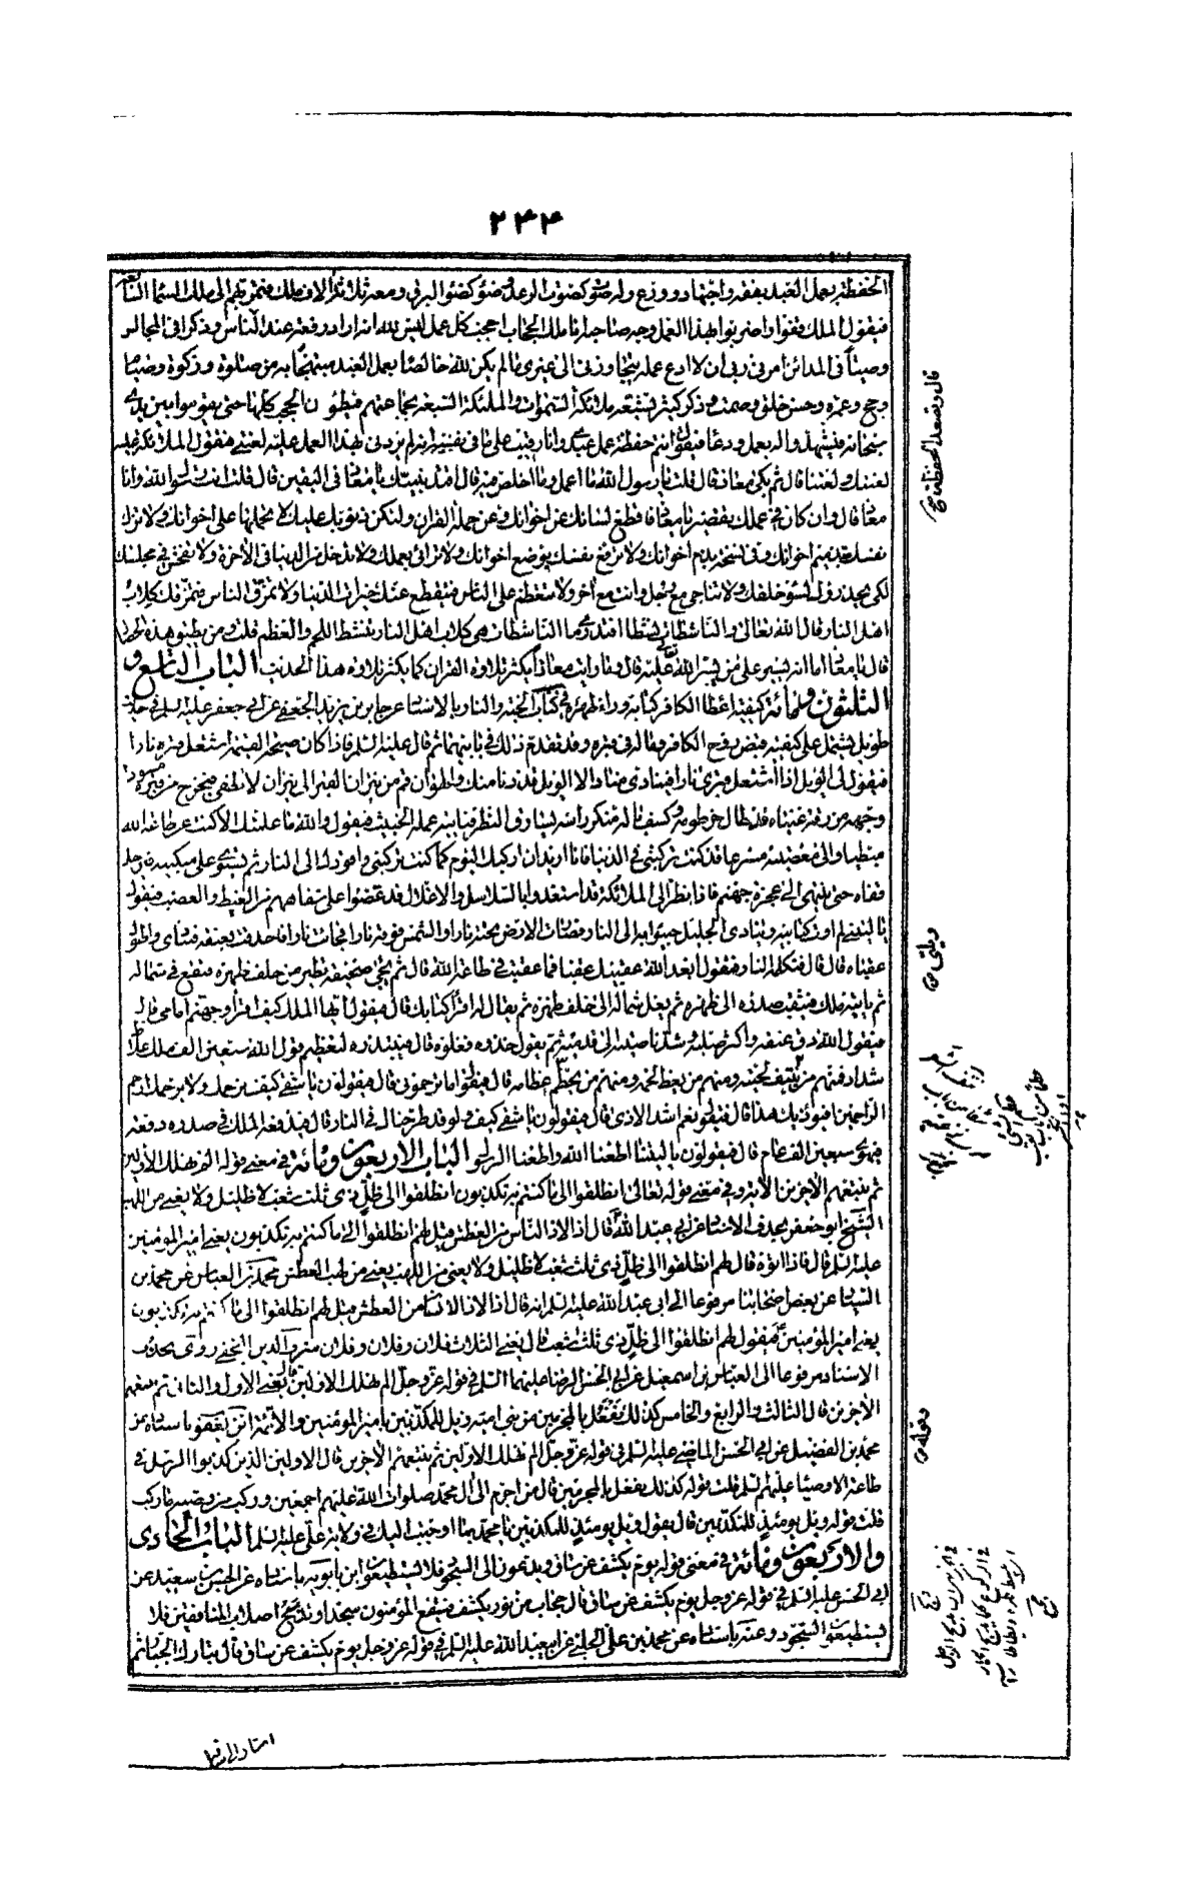 ۲۳۴
الحفظة بعمل العبد بفقه واجتهاد وورع وله صوت كصوت الرعد وضوء كضوء البرق ومعه ثلاثة آلاف ملك فتمر بهم إلى ملك السماء السابعة
فيقول الملك قفوا واضربوا بهذا العمل وجه صاحبه انا ملك الحجاب احجب كل عمل ليس لله انه اراد رفعة عند الناس وذكرا في المجالس
وصيتا في المدائن امرني ربي ان لا ادع عمله يتجاوزني الى غيري ما لم يكن لله خالصا بعمل العبد مبتهجا به من صلوة وزكوة وصيام
وحج وعمرة وحسن خلق وصمت وذكر كثير تشيعه ملائكة السموات والملئكة السبعة بجماعتهم فيطؤن الحجب كلها حتى يقوموا بين يديه
سبحانه فيشهدوا له بعمل ودعا فيقول انتم حفظة عمل عبدي وانا رقيب على ما في نفسه انه لم يردني بهذا العمل عليه لعنتي فيقول الملائكة عليه
لعنتك ولعنتنا قال ثم بكى معاذ قال قلت يا رسول الله ما اعمل وما اخلص فيه قال اقتد بنبيك يا معاذ في اليقين قال قلت انت رسول الله وانا
معاذ قال وان كان في عملك تقصير يا معاذ فاقطع لسانك عن اخوانك وعن حملة القران ولتكن ذنوبك عليك لا تحملها على اخوانك ولا تزك
نفسك بتذميم اخوانك ولا ترفع نفسك بوضع اخوانك ولا ترائي بعملك ولا تدخل من الدنيا في الاخرة ولا تفحش في مجلسك
لكي يحذروك لسوء خلقك ولا تناجي مع رجل وانت مع اخر ولا تتعظم على الناس فتنقطع عنك خيرات الدنيا ولا تمزق الناس فتمزقك كلاب
اهل النار قال الله تعالى والناشطات نشطا افتدري ما الناشطات هي كلاب اهل النار تنشط اللحم والعظم قلت ومن يطيق هذه الخصال
قال يا معاذ اما انه يسير على من يسر الله عليه قال وما رايت معاذا يكثر تلاوة القران كما يكثر تلاوة هذا الحديث الباب التاسع و
الثلثون ومائة كيفية اعطاء الكافر كتابه وراء ظهره في كتاب الجنة والنار بالاسناد عن جابر بن يزيد الجعفي عن ابي جعفر عليه السلم في حديث
طويل يشتمل على كيفية قبض روح الكافر وما له في قبره وقد تقدم ذلك في بابيهما ثم قال عليه السلم فاذا كان صيحة القيمة اشتعل قبره نارا
فيقول لي الويل اذا اشتعل قبري نارا فينادي مناد الا الويل قد دنا منك والهوان قم من نيران القبر الى نيران لا تطفى فيخرج من قبره مسودا
وجهه مزرقة عيناه قد طال خرطومه وكسف باله منكرا راسه يسارق النظر فياتيه عمله الخبيث فيقول والله ما علمتك الا كنت عن طاعة الله
مبطيا والى معصيته مسرعا قد كنت تركبني في الدنيا فانا اريد ان اركبك اليوم كما كنت تركبني واقودك الى النار ثم يستوي على منكبيه
قفاه حتى ينتهي الى عجزة جهنم فاذا نظر الى الملائكة قد استعدوا بالسلاسل والاغلال قد عضوا على شفاههم من الغيظ والغضب فيقول
يا ليتني لم اوت كتابيه وينادي الجليل جيئوا به الى النار فصارت الارض تحته نارا والشمس فوقه نارا
عيناه قال قال فتكلمه النار فتقول ابعد الله عقبيك عقبا فما عقبتك في طاعة الله قال ثم تجئ صحيفته تطير من خلف ظهره فتقع في شماله
ثم ياتيه ملك فيثقب صدره الى ظهره ثم يفتل شماله الى خلف ظهره ثم يقال له اقرأ كتابك قال فيقول ايها الملك كيف اقرأ وجهنم امامي قال
فيقول الله دق عنقه واكسر صلبه وشد ناصيته الى قدميه ثم يقول خذوه فغلوه قال فيبتدره لتعظيم قول الله سبعين الف ملك غلاظ
شداد فمنهم من ينتف لحيته ومنهم من يعض لحمه ومنهم من يحطم عظامه قال فيقول اما ترحموني قال فيقولون يا شقي كيف نرحمك ولا يرحمك ارحم
الراحمين افيوذيك هذا قال فيقول نعم اشد الاذى قال فيقولون يا شقي كيف ولو قد طرحناك في النار قال فيدفعه الملك في صدره دفعة
فيهوي سبعين الف عام قال فيقولون يا ليتنا اطعنا الله واطعنا الرسولا الباب الاربعون ومائة في معنى قوله الم نهلك الاولين
ثم نتبعهم الاخرين الاية وفي معنى قوله تعالى انطلقوا الى ما كنتم به تكذبون انطلقوا الى ظل ذي ثلث شعب لا ظليل ولا يغني من اللهب
الشيخ ابو جعفر بحذف الاسناد عن ابي عبد الله قال اذا لاذ الناس من العطش قيل لهم انطلقوا الى ما كنتم به تكذبون يعني امير المؤمنين
عليه السلم قال فاذا اتوه قال لهم انطلقوا الى ظل ذي ثلث شعب لا ظليل ولا يغني من اللهب يعني من لهب العطش محمد بن العباس عن محمد بن
عن بعض اصحابنا مرفوعا الى ابي عبد الله عليه السلم انه قال اذا لاذ الناس من العطش قيل لهم انطلقوا الى ما كنتم به تكذبون
يعني امير المؤمنين فيقول لهم انطلقوا الى ظل ذي ثلث شعب قال يعني الثلاث فلان وفلان وفلان شرف الدين النجفي روى بحذف
الاسناد مرفوعا الى العباس بن اسمعيل عن ابي الحسن الرضا عليهما السلم في قوله عز وجل الم نهلك الاولين قال يعني الاول والثاني ثم نتبعهم
الاخرين قال الثالث والرابع والخامس كذلك نفعل بالمجرمين من بني امية ويل للمكذبين بامير المؤمنين والائمة ابن يعقوب باسناده عن
محمد بن الفضيل عن ابي الحسن الماضي عليه السلم في قوله عز وجل الم نهلك الاولين ثم نتبعهم الاخرين قال الاولين الذين كذبوا الرسل في
طاعة الاوصياء عليهم السلم قلت قوله كذلك نفعل بالمجرمين قال من اجرم الى ال محمد صلوات الله عليهم اجمعين وركب من وصيه ما ركب
قلت قوله ويل يومئذ للمكذبين قال يقول ويل يومئذ للمكذبين يا محمد بما اوحيت اليك في ولاية علي عليه السلم الباب الحادي
والاربعون ومائة في معنى قوله يوم يكشف عن ساق ويدعون الى السجود فلا يستطيعون ابن بابويه باسناده عن الحسين بن سعيد عن
ابي الحسن عليه السلم في قوله عز وجل يوم يكشف عن ساق قال حجاب من نور يكشف فيقع المؤمنون سجدا وتدمج اصلاب المنافقين فلا
يستطيعون السجود وعنه باسناده عن محمد بن علي الحلبي عن ابي عبد الله عليه السلم في قوله عز وجل يوم يكشف عن ساق قال تبارك الجبار ثم
قال وتصعد الحفظة صح